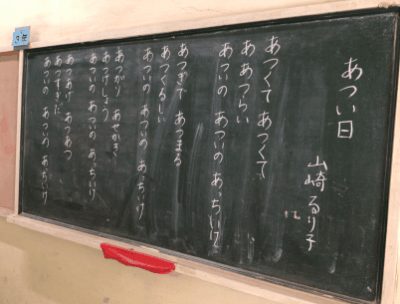 あつい日
山崎るり子
あつくて あつくて
ああつらい
あついの あついの あっちいけ
あつすぎて あつまる
あつくるしい
あついの あついの あっちいけ
あつがり あせかき
あつでしょう
あついの あついの あっちいけ
あつあつ
あついの あついの あっちいけ